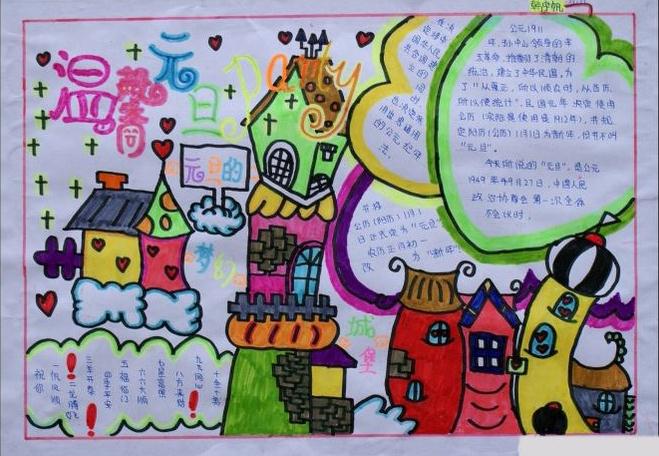 温馨
元旦
Party
元旦的
梦幻
城堡
公元1911
年,孙中山领导的辛
亥革命,推翻了清朝的
统治,建立了中华民国。为
了"从夏正,所以顺农时,从西历,
所以便统计",民国元年决定使用
公历(实际是使用是1912年),并规
定阳历(公历)1月1日为新年,但并不叫
"元旦"。
今天所说的"元旦",是公元
1949年9月27日,中国人民
政治协商会第一次全体
会议时,
在决
定建立中
华人民
共和国
的同
时
也决定采
用世界通用
的公元纪年
法,
并将
公历(阳历)1月1
日正式定为"元旦",
农历正月初一
改为"新年"。
祝你
一帆风顺
二龙腾飞
三羊开泰
四季平安
五福临门
六六大顺
七星高照
八方来财
九九同心
十全十美